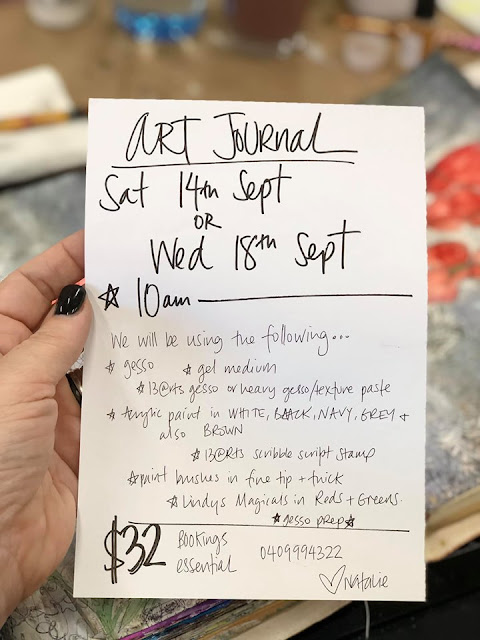 ART JOURNAL
Sat 14th Sept
OR
Wed 18th Sept
☆ 10am
We will be using the following...
☆ gesso ☆ gel medium
☆ 13@rts gesso or heavy gesso/texture paste
☆ Acrylic paint in WHITE, BLACK, NAVY, GREY +
also BROWN
☆ 13@rts scribble script stamp
☆ paint bushes in fine tip + thick
☆ Lindys Magicals in Reds + Greens.
☆ gesso prep ☆
$32 Bookings essential 0409994322
♡ Natalie